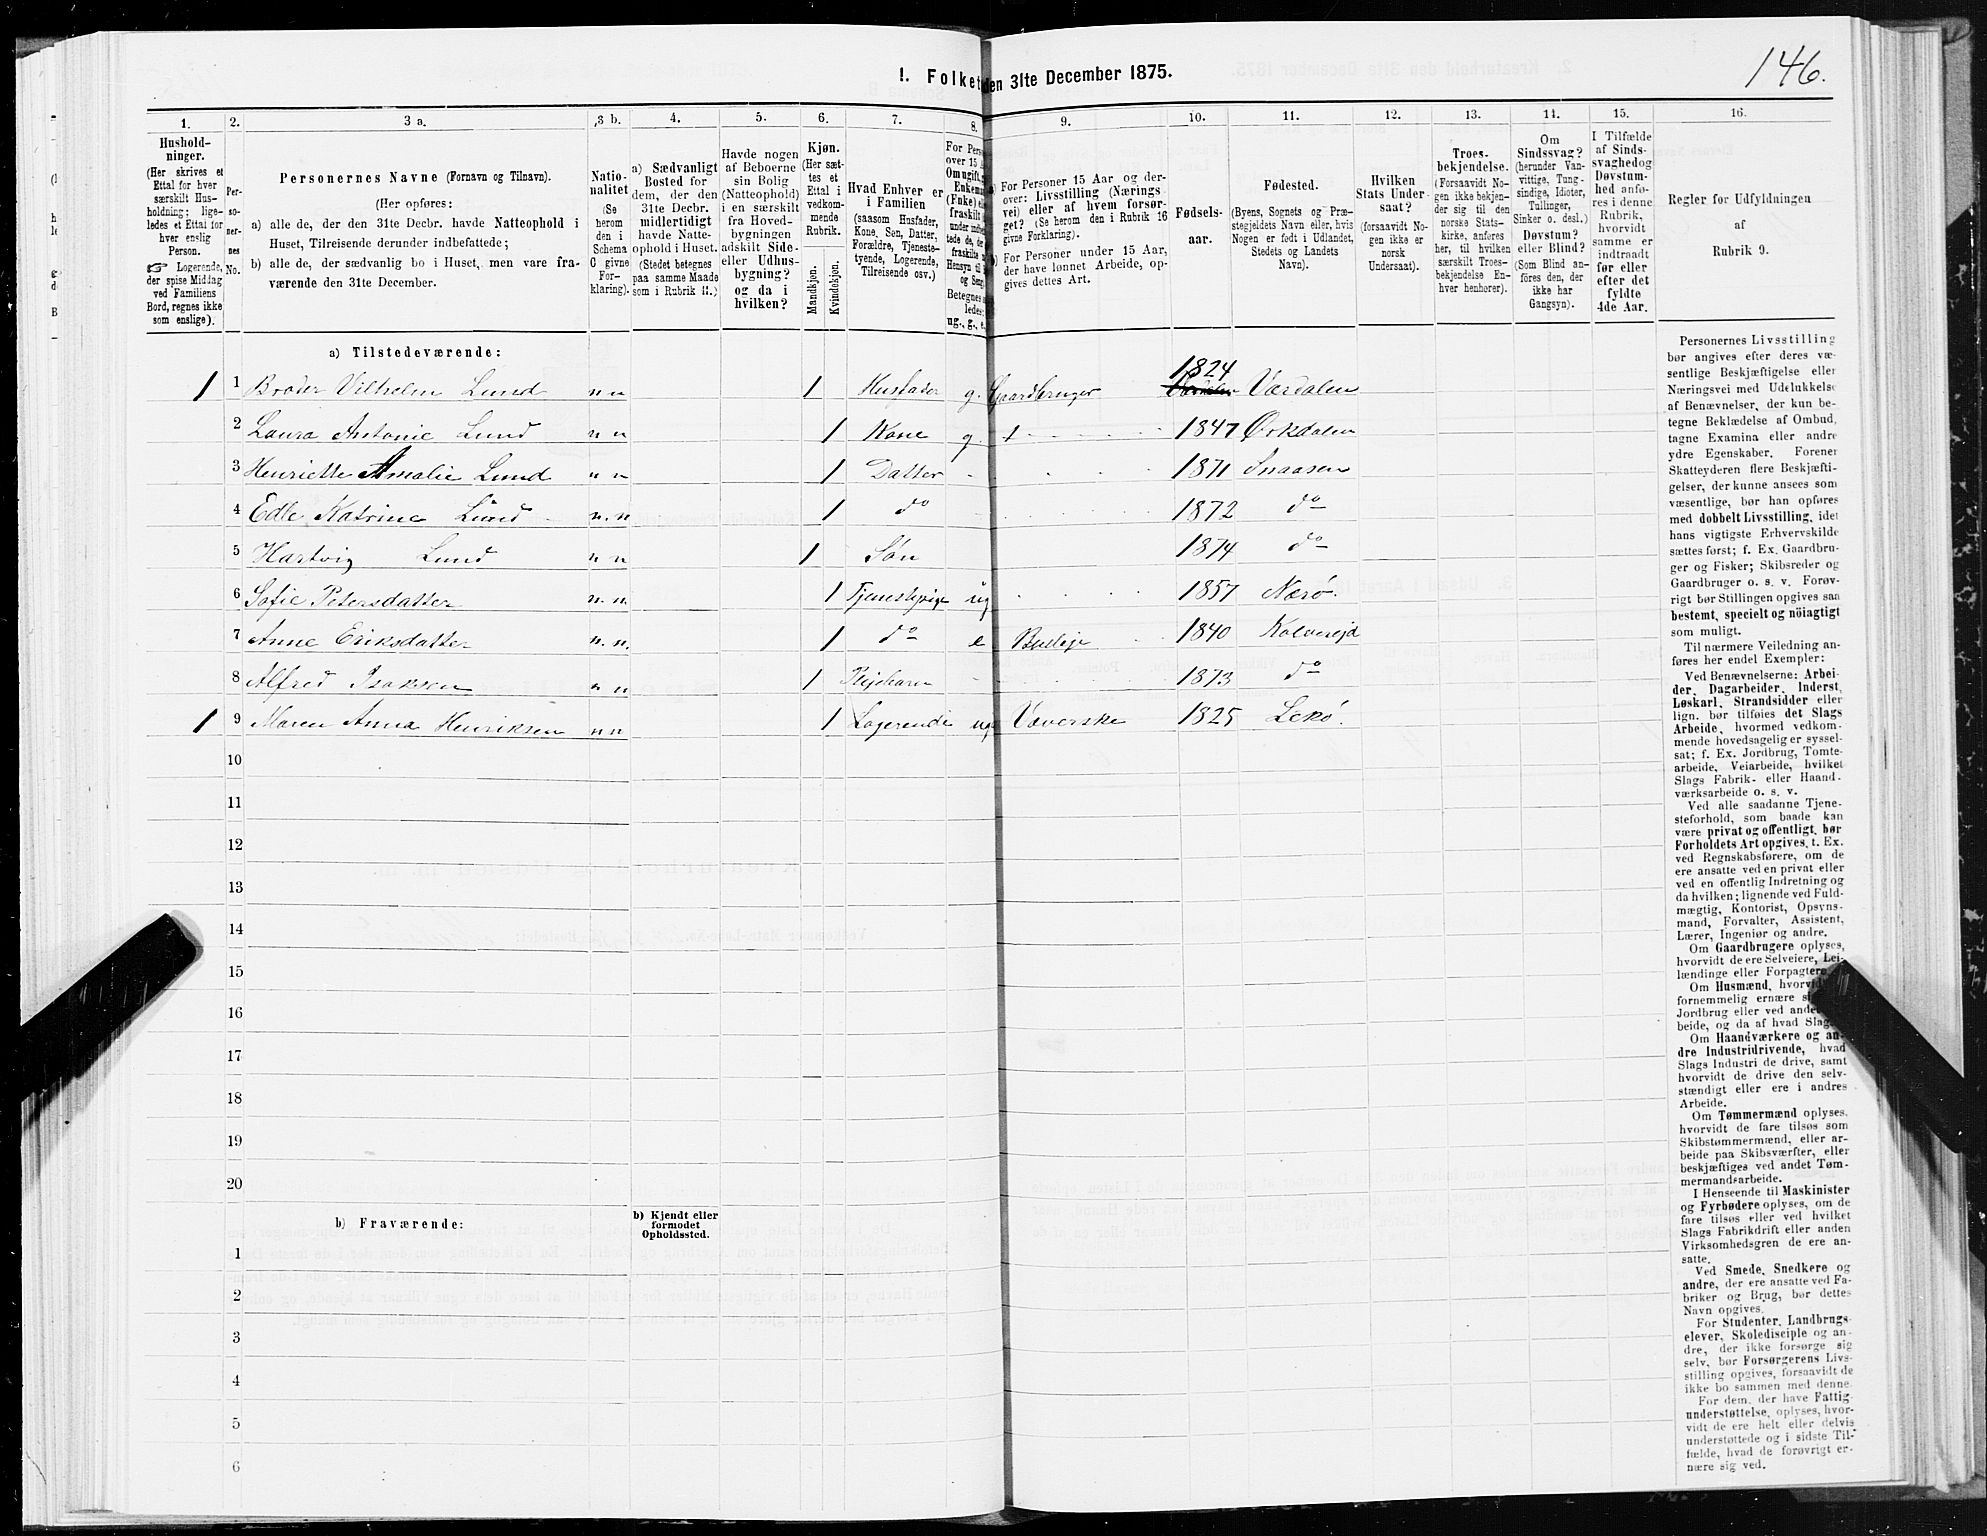 146.
1. Folket den 31te December 1875.
1. 2. 3 a. 3 b. 4. 5. 6. 7. 8. 9. 10. 11. 12. 13. 14. 15. 16.
Husholdninger. (Her skrives et Ettal for hver særskilt Husholdning; ligeledes et Ettal for hver enslig Person. ☞ Logerende, der spise Middag ved Familiens Bord, regnes ikke som enslige).
Personernes No.
Personernes Navne (Fornavn og Tilnavn).
(Her opføres:
a) alle de, der den 31te Decbr. havde Natteophold i Huset, Tilreisende derunder indbefattede;
b) alle de, der sædvanlig bo i Huset, men vare fraværende den 31te December.
Nationalitet (Se herom den i Schema C givne Forklaring).
a) Sædvanligt Bosted for dem, der den 31te Decbr. midlertidigt havde Natteophold i Huset. (Stedet betegnes paa samme Maade som i Rubrik 11.)
Havde nogen af Beboerne sin Bolig (Natteophold) i en særskilt fra Hovedbygningen adskilt Side- eller Udhusbygning? og da i hvilken?
Kjøn. (Her sættes et Ettal i vedkommende Rubrik.
Mandkjøn. Kvindekjøn.
Hvad Enhver er i Familien (saasom Husfader, Kone, Søn, Datter, Forældre, Tjenestetyende, Logerende, Tilreisende osv.)
For Pers over 15 A Om ugift, Enkema (Fuke) e fraskilt under indb tede de, de fraskilte Hensyn til og Seng Betegnes ledes: ug., g., e.
a) For Personer 15 Aar og derover: Livsstilling (Næringsvei) eller af hvem forsørget? (Se herom den i Rubrik 16 givne Forklaring).
b) For Personer under 15 Aar, der have lønnet Arbeide, opgives dettes Art.
Fødselsaar.
Fødested. (Byens, Sognets og Præstegjeldets Navn, eller hvis Nogen er født i Udlandet, Stedets og Landets Navn).
Hvilken Stats Undersaat? (forsaavidt Nogen ikke er norsk Undersaat).
Troesbekjendelse. (Forsaavidt Nogen ikke bekjender sig til den norske Statskirke, anføres her, til hvilken særskilt Troesbekjendelse Enhver henhører).
Om Sindssvag? (herunder Vanvittige, Tungsindige, Idioter, Tullinger, Sinker o. desl.) Døvstum? eller Blind? (Som Blind anføres den, der ikke har Gangsyn).
I Tilfælde af Sindssvaghed og Døvstumhed anføres i denne Rubrik, hvorvidt samme er indtraadt før eller efter det fyldte 4de Aar.
Regler for Udfyldningen af Rubrik 9.
a) Tilstedeværende:
1 1 Broder Vilhelm Lund n n 1 Husfader g. Gaardbruger 1824 Værdalen
2 Laura Antonie Lund n n 1 Kone g 1847 Ørkdalen
3 Henriette Amalie Lund n n 1 Datter 1871 Snaasen
4 Edle Katrine Lund n. n 1 do 1872 do
5 Hartvig Lund n n 1 Søn 1874 do
6 Sofie Petersdatter n. n. 1 Tjenestepige ug 1857 Nærø.
7 Anne Eriksdatter n. n. 1 do e Budeje 1840 Kolvereid
8 Alfred Isaksen n n 1 Plejebarn 1873 do
1 9 Maren Anna Henriksen n n 1 Logerende ug Væverske 1825 Lekø.
10
11
12
13
14
15
16
17
18
19
20
b) Fraværende:
b) Kjendt eller formodet Opholdssted.
1
2
3
4
5
6
Personernes Livsstilling
bør angives efter deres væ-
sentlige Beskjæftigelse eller
Næringsvei med Udelukkelse
af Benævnelser, der kun be-
tegne Beklædelse af Ombud,
tagne Examina eller andre
ydre Egenskaber. Forener
Skatteyderen flere Beskjæfti-
gelser, der kunne ansees som
væsentlige, bør han opføres
med dobbelt Livsstilling, idet
hans vigtigste Erhvervskilde
sættes først; f. Ex. Gaardbru-
ger og Fisker; Skibsreder og
Gaardbruger o. s. v. Forøv-
rigt bør Stillingen opgives saa
bestemt, specielt og nöiagtigt
som muligt.
Til nærmere Veiledning an-
føres her endel Exempler:
Ved Benævnelserne: Arbei-
der, Dagarbeider, Inderst,
Løskarl, Strandsidder eller
lign. bør tilføies det Slags
Arbeide, hvormed vedkom-
mende hovedsagelig er syssel-
sat; f. Ex. Jordbrug, Tomte-
arbeide, Veiarbeide, hvilket
Slags Fabrik- eller Haand-
værksarbeide o. s. v.
Ved alle saadanne Tjene-
steforhold, som baade kan
være privat og offentligt, bør
Forholdets Art opgives, t. Ex.
ved Regnskabsførere, om de
ere ansatte ved en privat eller
ved en offentlig Indretning og
da hvilken; lignende ved Fuld-
mægtig, Kontorist, Opsyns-
mand, Forvalter, Assistent,
Lærer, Ingeniør og andre.
Om Gaardbrugere oplyses,
hvorvidt de ere Selveiere, Lei-
lændinge eller Forpagtere
Om Husmænd, hvorvid
fornemmelig ernære s
Jordbrug eller ved ande
beide, og da af hvad Slag
Om Haandværkere og an-
dre Industridrivende, hvad
Slags Industri de drive, samt
hvorvidt de drive den selv-
stændigt eller ere i andres
Arbeide.
Om Tømmermænd oplyses,
hvorvidt de fare tilsøs som
Skibstømmermænd, eller ar-
beide paa Skibsværfter, eller
beskjæftiges ved andet Tøm-
mermandsarbeide.
I Henseende til Maskinister
og Fyrbødere oplyses, om de
fare tilsøs eller ved hvilket
Slags Fabrikdrift eller anden
Virksomhedsgren de ere an-
satte.
Ved Smede, Snedkere og
andre, der ere ansatte ved Fa-
briker og Brug, bør dettes
Navn opgives.
For Studenter, Landbrugs-
elever, Skoledisciple og an-
dre, der ikke forsørge sig
selv, bør Forsørgerens Livs-
stilling opgives, forsaavidt de
ikke bo sammen med denne.
For dem, der have Fattig-
understøttelse, oplyses, hvor-
vidt de ere helt eller delvis
understøttede og i sidste Til-
fælde, hvad de forøvrigt er-
nære sig ved.